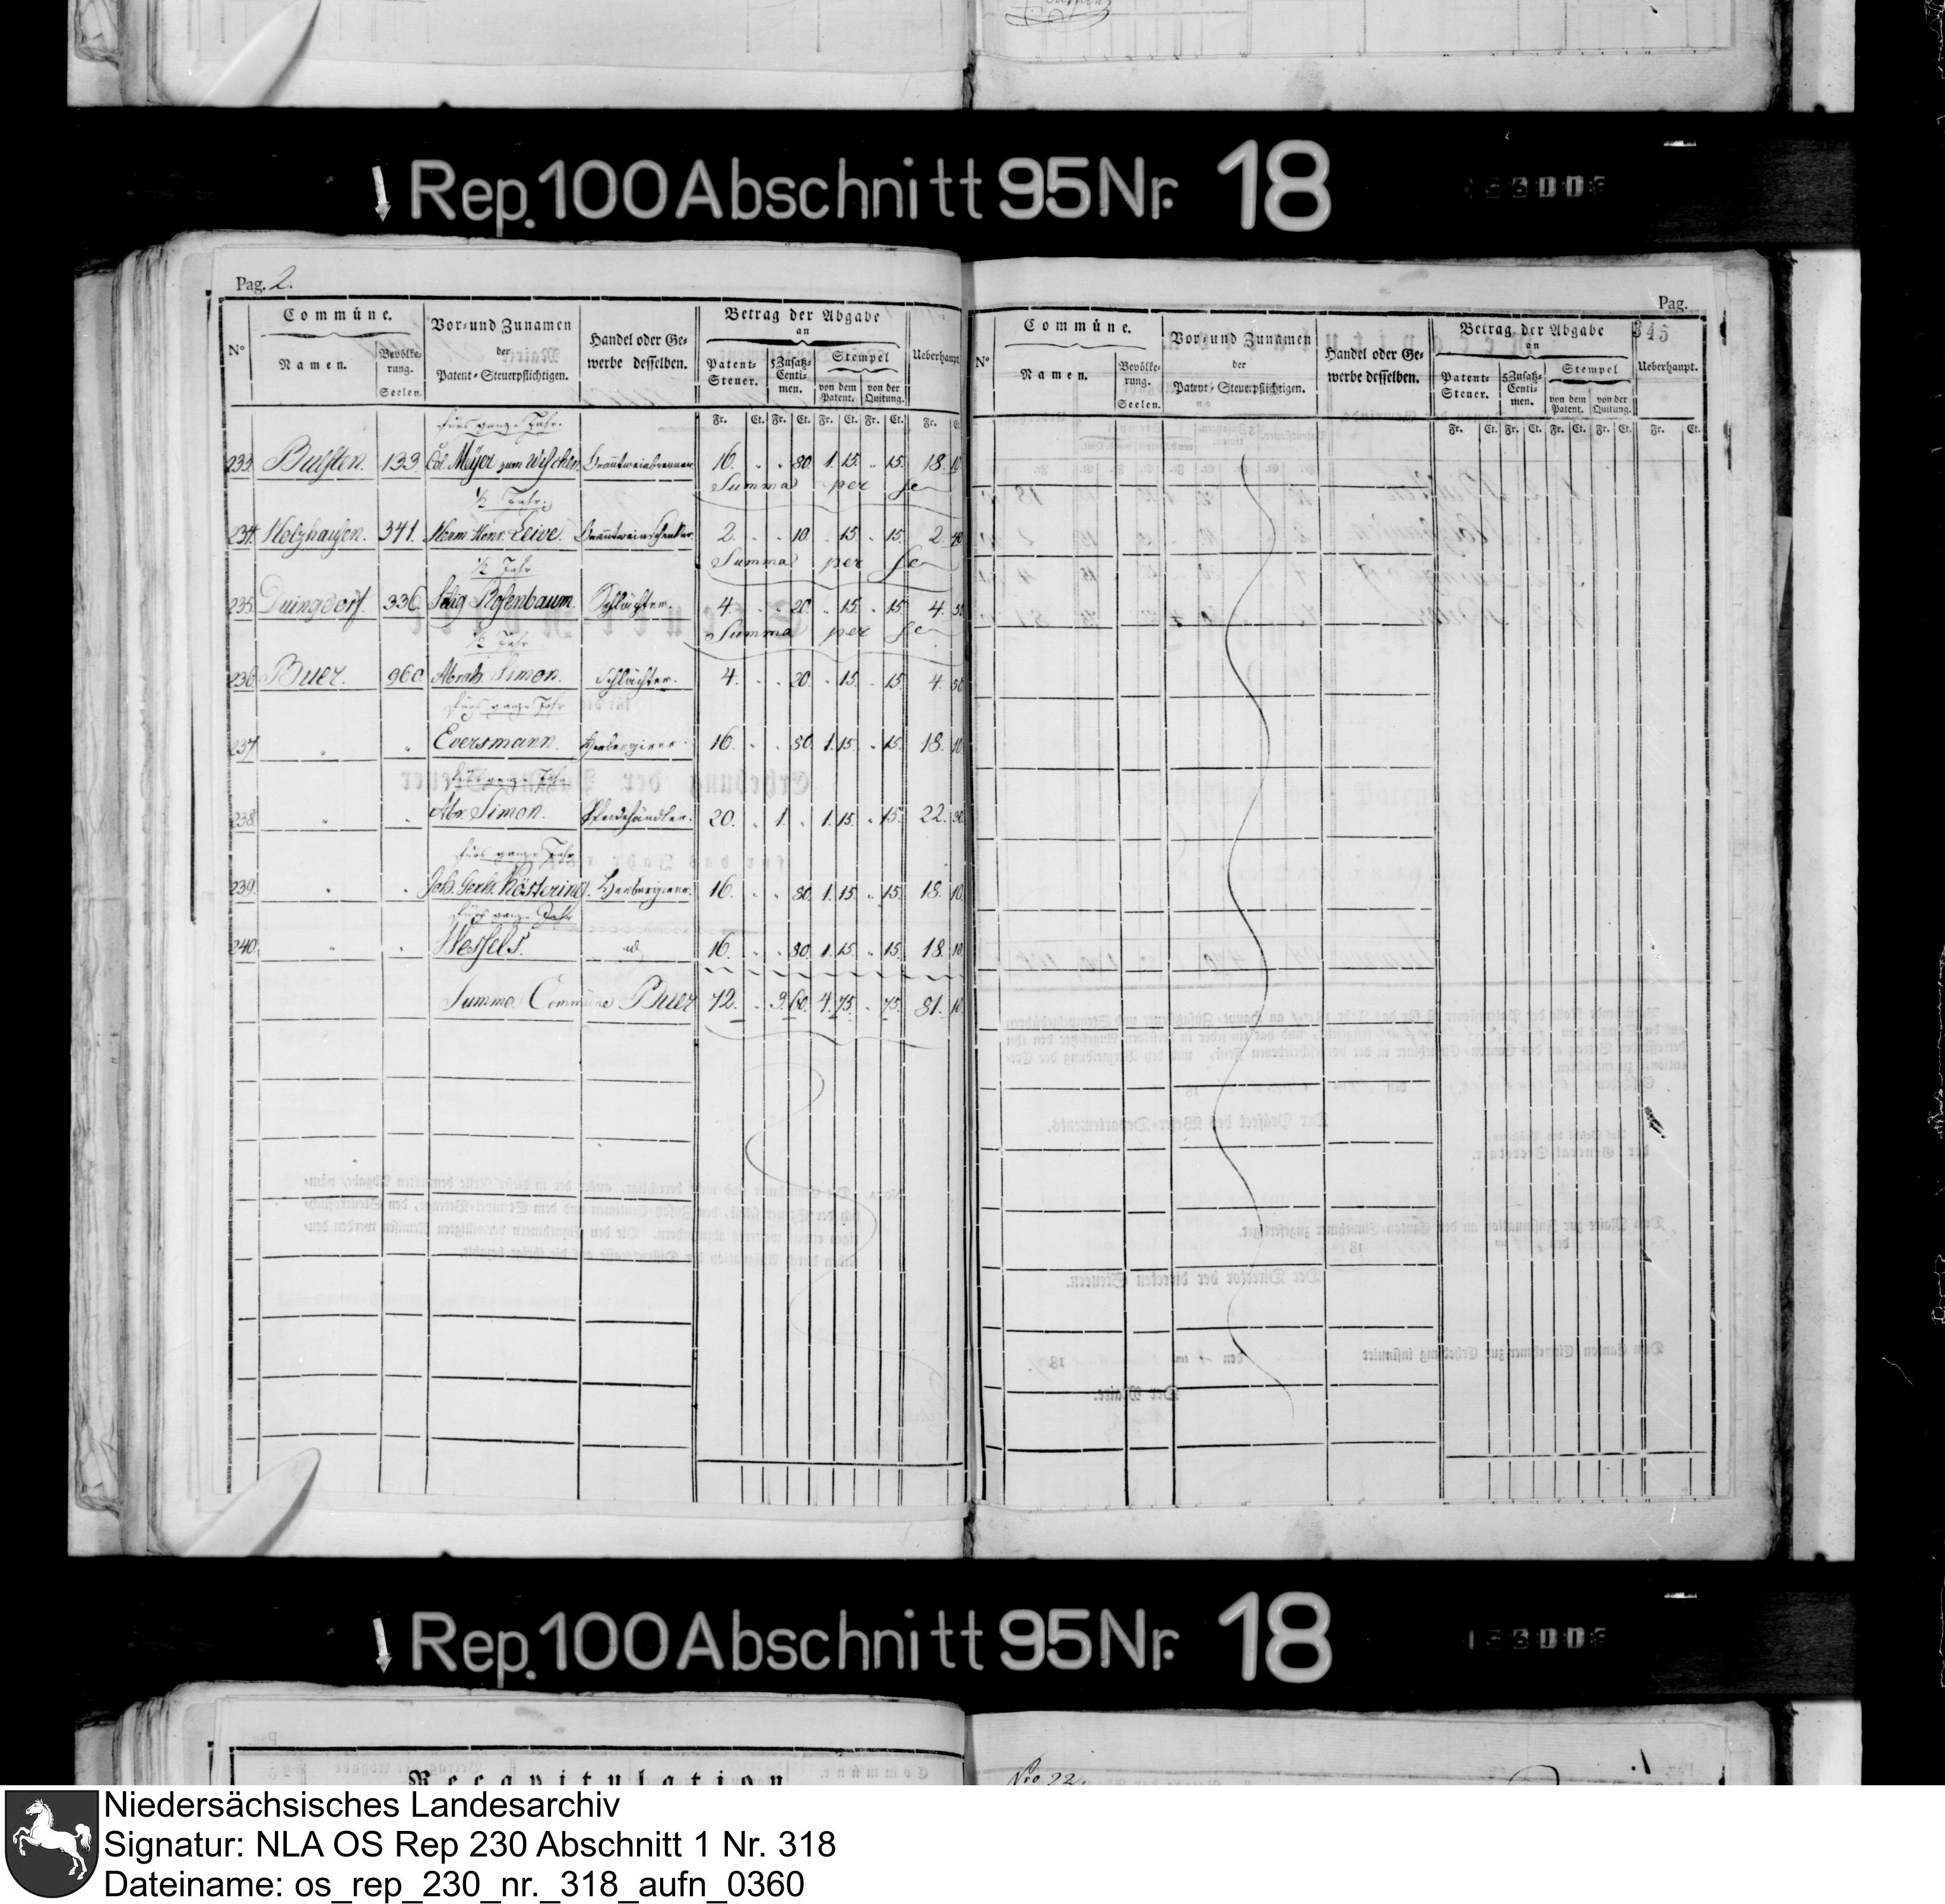 Rep. 100 Abschnitt 95 Nr. 18
Pag. 2.
N°
Commüne.
Namen.
Bevölke-
rung.
Seelen.
Vor- und Zunamen
der
Patent-Steuerpflichtigen.
Handel oder Ge-
werbe desselben.
Betrag der Abgabe
an
Patent-
Steuer.
5 Zusatz-
Centi-
men.
Stempel
von dem
Patent.
von der
Quitung.
Ueberhaupt.
Fr. Ct. Fr. Ct. Fr. Ct. Fr. Ct. Fr.
fürs ganze Jahr.
233. Buesten. 133. Col. Meyer zum Wischen. Branntweinbrenner. 16. . . 80. 1. 15. . 15. 18. 10
Summa per se
½ Jahr.
234. Holzhausen. 341. Herm Henr. Leive. Branntweinschenker. 2. . . 10. . 15. . 15. 2. 40
Summa per se
½ Jahr
235. Duingdorf. 336. Selig Rosenbaum. Schlächter. 4. . . 20. . 15. . 15 4. 50
Summa per se
½ Jahr
236. Buer. 960 Abrah. Simon. Schlächter. 4. . . 20. . 15. . 15. 4. 50
fürs ganze Jahr
237. " " Eversmann. Herbergierer. 16. . . 80. 1. 15. . 15. 18. 10
fürs ganze Jahr
238. " " Abr. Simon. Pferdehändler. 20. . 1. . 1. 15. . 15. 22. 30
fürs ganze Jahr
239. " " Joh. Gerh. Köstering. Herbergierer. 16. . . 80. 1. 15. . 15. 18. 10
fürs ganze Jahr
240. " " Wessels. id 16. . . 80. 1. 15. . 15. 18. 10
Summa Commüne Buer 72. . 3. 60. 4. 75. . 75. 81. 10
Pag.
345
N°
Commüne.
Namen.
Bevölke-
rung.
Seelen.
Vor- und Zunamen
der
Patent-Steuerpflichtigen.
Handel oder Ge-
werbe desselben.
Betrag der Abgabe
an
Patent-
Steuer.
5 Zusatz-
Centi-
men.
Stempel
von dem
Patent.
von der
Quitung.
Ueberhaupt.
Fr. Ct. Fr. Ct. Fr. Ct. Fr. Ct. Fr. Ct.
Rep. 100 Abschnitt 95 Nr. 18
Recapitulation
Nro 22.
Niedersächsisches Landesarchiv
Signatur: NLA OS Rep 230 Abschnitt 1 Nr. 318
Dateiname: os_rep_230_nr._318_aufn_0360